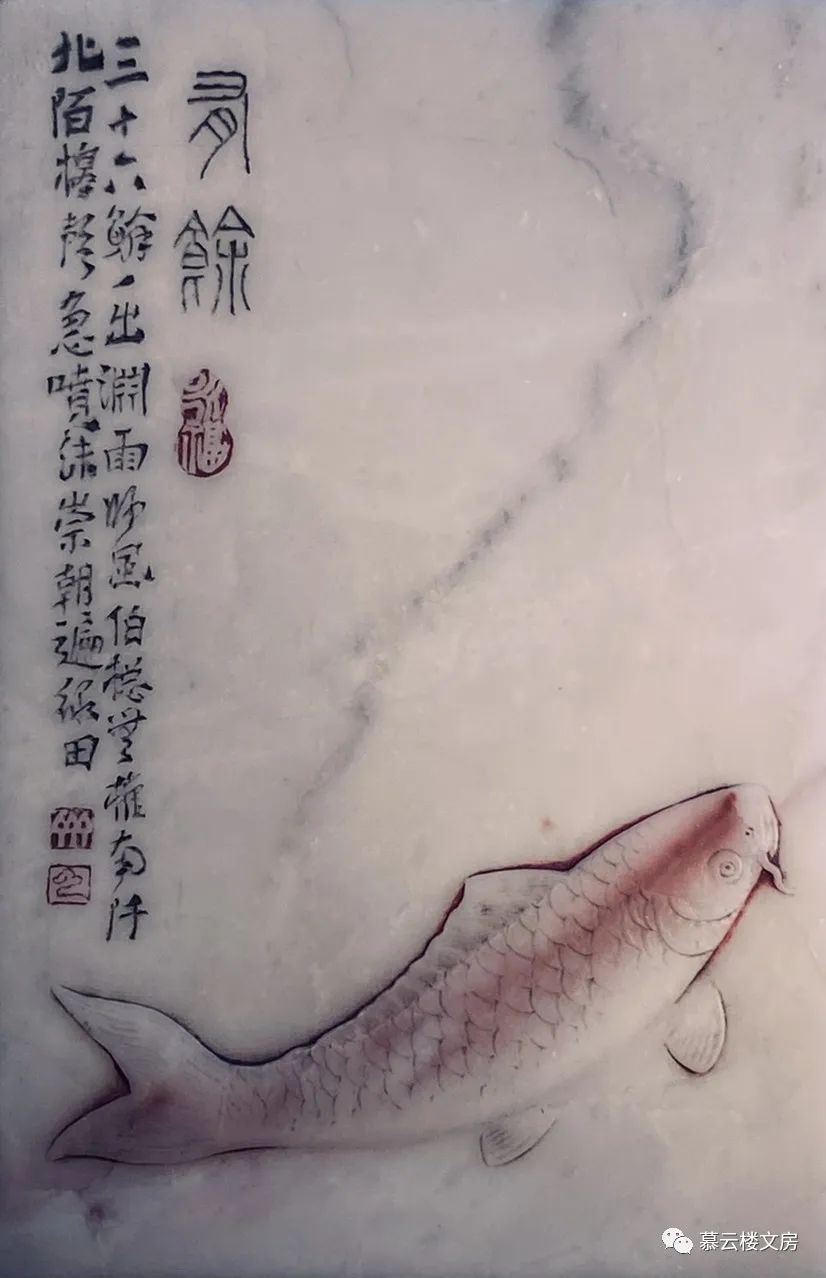 有餘
三十六鱗一出淵雨師風伯總無權南阡
北陌槔聲急噴沫崇朝遍綠田
慕云楼文房